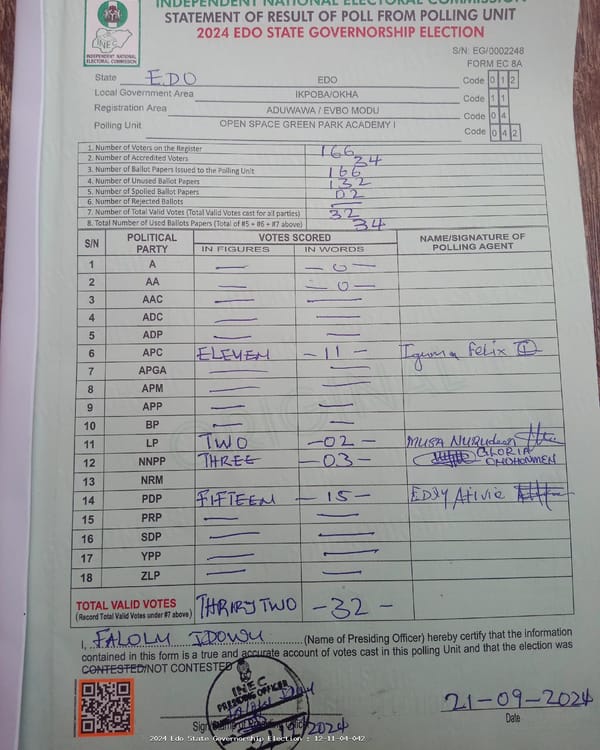 INDEPENDENT NATIONAL ELECTORAL COMMISSION
STATEMENT OF RESULT OF POLL FROM POLLING UNIT
2024 EDO STATE GOVERNORSHIP ELECTION
INEC
INDEPENDENT NATIONAL ELECTORAL COMMISSION
S/N: EG/0002248
FORM EC 8A
State EDO EDO Code 0 1 2
Local Government Area IKPOBA/OKHA Code 1 1
Registration Area ADUWAWA / EVBO MODU Code 0 4
Polling Unit OPEN SPACE GREEN PARK ACADEMY I Code 0 4 2
1. Number of Voters on the Register 166
2. Number of Accredited Voters 34
3. Number of Ballot Papers Issued to the Polling Unit 166
4. Number of Unused Ballot Papers 132
5. Number of Spoiled Ballot Papers 02
6. Number of Rejected Ballots —
7. Number of Total Valid Votes (Total Valid Votes cast for all parties) 32
8. Total Number of Used Ballots Papers (Total of #5 + #6 + #7 above) 34
S/N POLITICAL PARTY VOTES SCORED NAME/SIGNATURE OF POLLING AGENT
IN FIGURES IN WORDS
1 A — — 0 —
2 AA — — 0 —
3 AAC — —
4 ADC — —
5 ADP — —
6 APC ELEVEN — 11 — Felix
7 APGA — —
8 APM — —
9 APP — —
10 BP — —
11 LP TWO — 02 — MUSA NURUDEEN
12 NNPP THREE — 03 — GLORIA
13 NRM
14 PDP FIFTEEN — 15 — EDDY
15 PRP — —
16 SDP — —
17 YPP — —
18 ZLP — —
TOTAL VALID VOTES THRIRY TWO — 32 —
(Record Total Valid Votes under #7 above)
I, FALOLU IDOWU (Name of Presiding Officer) hereby certify that the information
contained in this form is a true and accurate account of votes cast in this polling Unit and that the election was
CONTESTED/NOT CONTESTED
INEC
PRESIDING OFFICER
21-09-2024
Date
2024 Edo State Governorship Election : 12-11-04-042